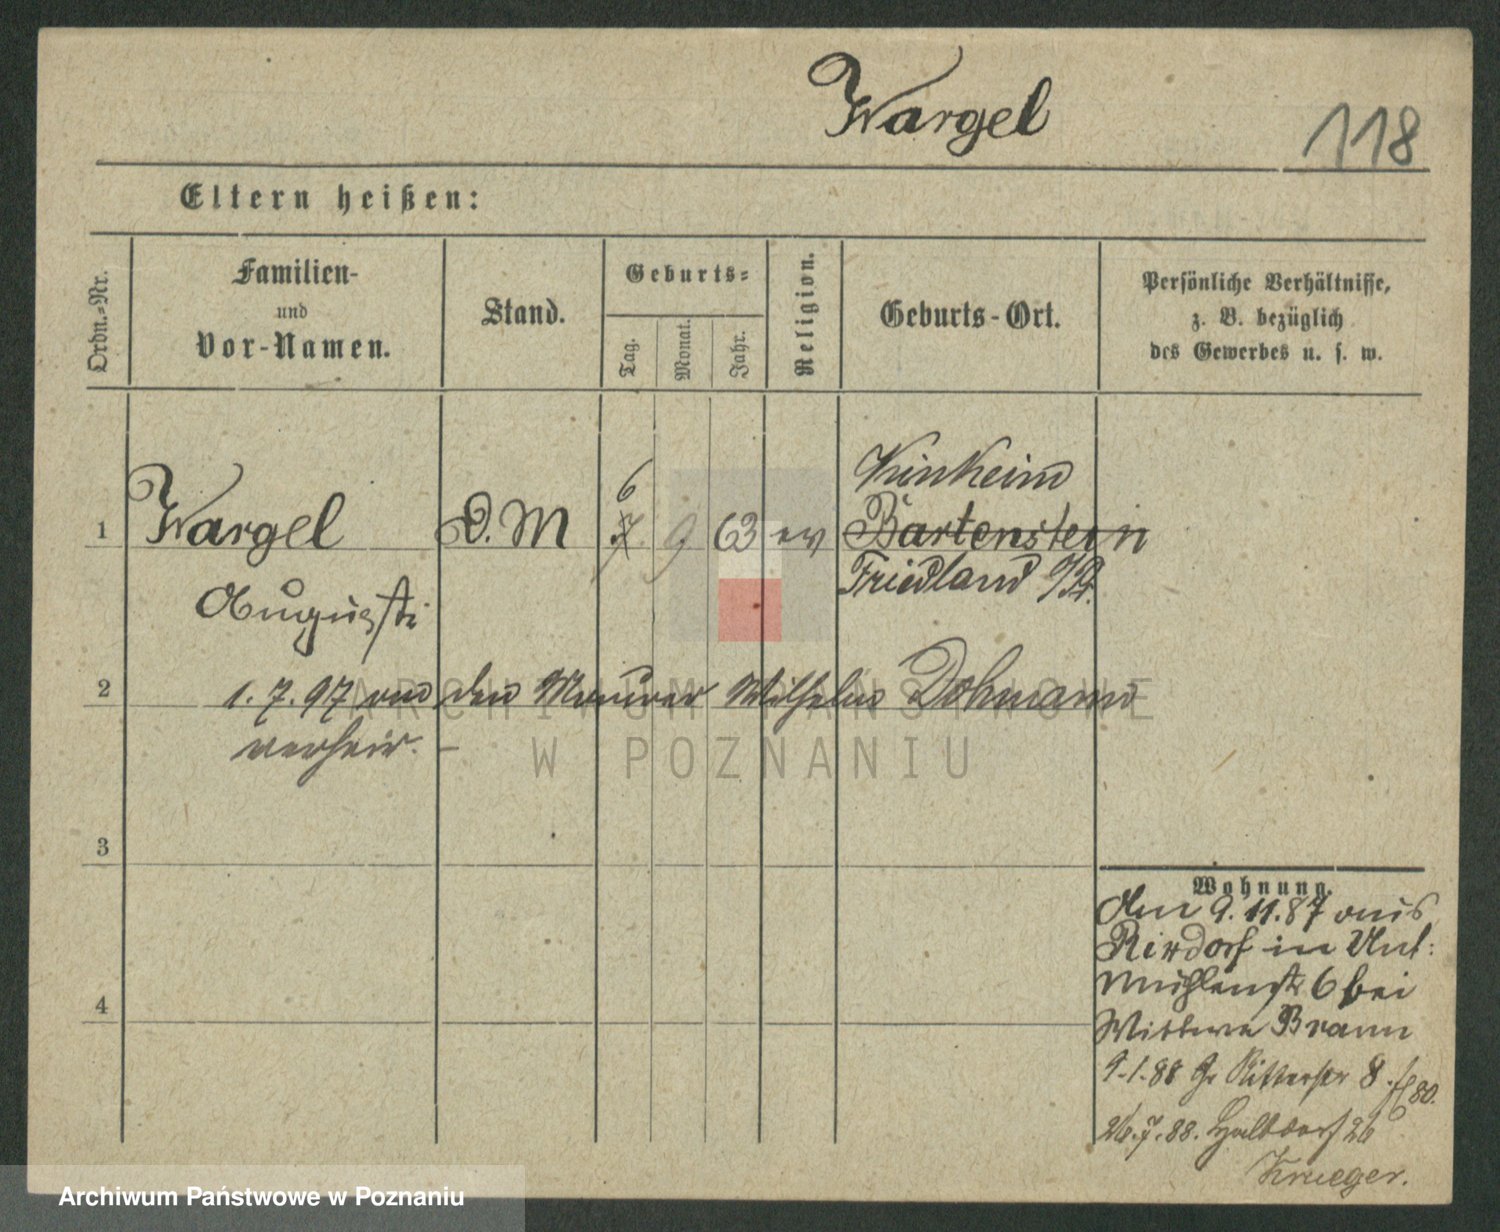 Wargel
118
Eltern heißen:
Ordn.-Nr.
Familien-
und
Vor-Namen.
Stand.
Geburts-
Tag.
Monat.
Jahr.
Religion.
Geburts-Ort.
Persönliche Verhältnisse,
z. B. bezüglich
des Gewerbes u. s. w.
Kinkeim
6
1 Wargel D.M 7 9 63 ev Bartenstein
Friedland
Auguste
2 1.7.97 den Maurer Wilhelm Dohmann
verheir. –
3
Wohnung.
Am 9.11.87 aus
Rixdorf in Unt:
mühlenstr 6 bei
4
Wittwe Braun
9-1.88 Gr Ritterstr 8
26.7.88. Halbdorf 26
Krueger.
ARCHIWUM PAŃSTWOWE
W POZNANIU
Archiwum Państwowe w Poznaniu